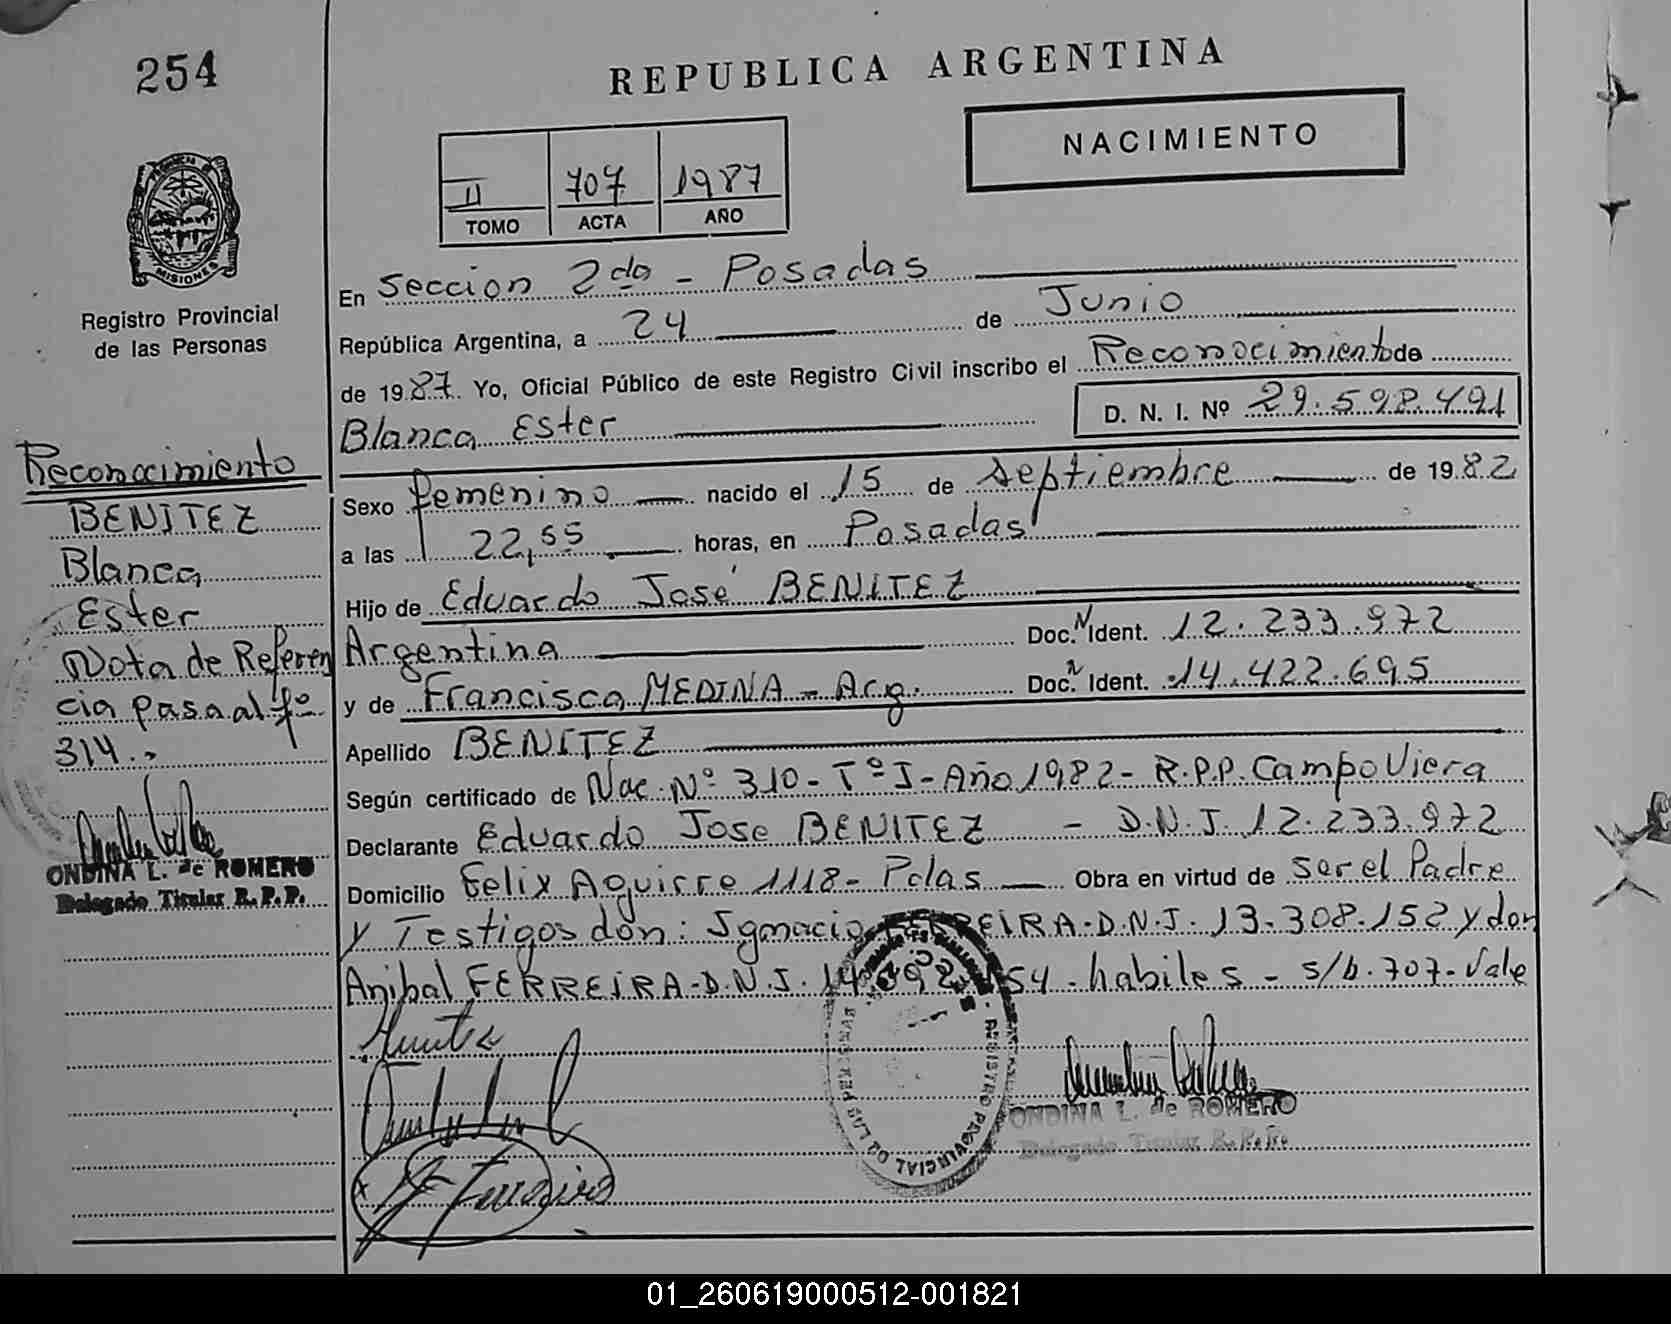 254
REPUBLICA ARGENTINA
NACIMIENTO
II 707 1987
TOMO ACTA AÑO
MISIONES
Registro Provincial
de las Personas
En Seccion 2da - Posadas
República Argentina, a 24 de Junio
de 1987. Yo, Oficial Público de este Registro Civil inscribo el Reconocimiento de
Blanca Ester D. N. I. Nº 29.598.491
Sexo femenino nacido el 15 de septiembre de 1982
a las 22,55 horas, en Posadas
Hijo de Eduardo José BENITEZ
Argentina Doc. N Ident. 12.233.972
y de Francisca MEDINA - Arg. Doc. N Ident. 14.422.695
Apellido BENITEZ
Según certificado de Nac. Nº 310 - Tº I - Año 1982 - R.P.P. Campo Viera
Declarante Eduardo Jose BENITEZ - D.N.I. 12.233.972
Domicilio Felix Aguirre 1118 - Pdas Obra en virtud de ser el Padre
y Testigos don: Ignacio FERREIRA - D.N.I. 13.308.152 y don
Anibal FERREIRA - D.N.I. 14. - habiles - s/b. 707 - Vale
Reconocimiento
BENITEZ
Blanca
Ester
Nota de Referen
cia pasa al fº
314.,
ONDINA L. de ROMERO
Delegado Titular R.P.P.
REGISTRO PROVINCIAL DE LAS PERSONAS
ONDINA L. de ROMERO
Delegado Titular R.P.P.
01_260619000512-001821